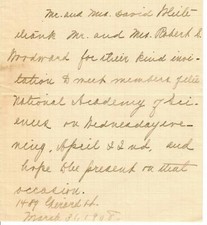 Mr. and Mrs. David White
thank Mr. and Mrs. Robert S.
Woodward for their kind invi-
tation to meet members of the
National Academy of Sci-
ences on Wednesday eve-
ning, April 22nd, and
hope to be present on that
occasion.
1459 Girard St.
March 31, 1908.